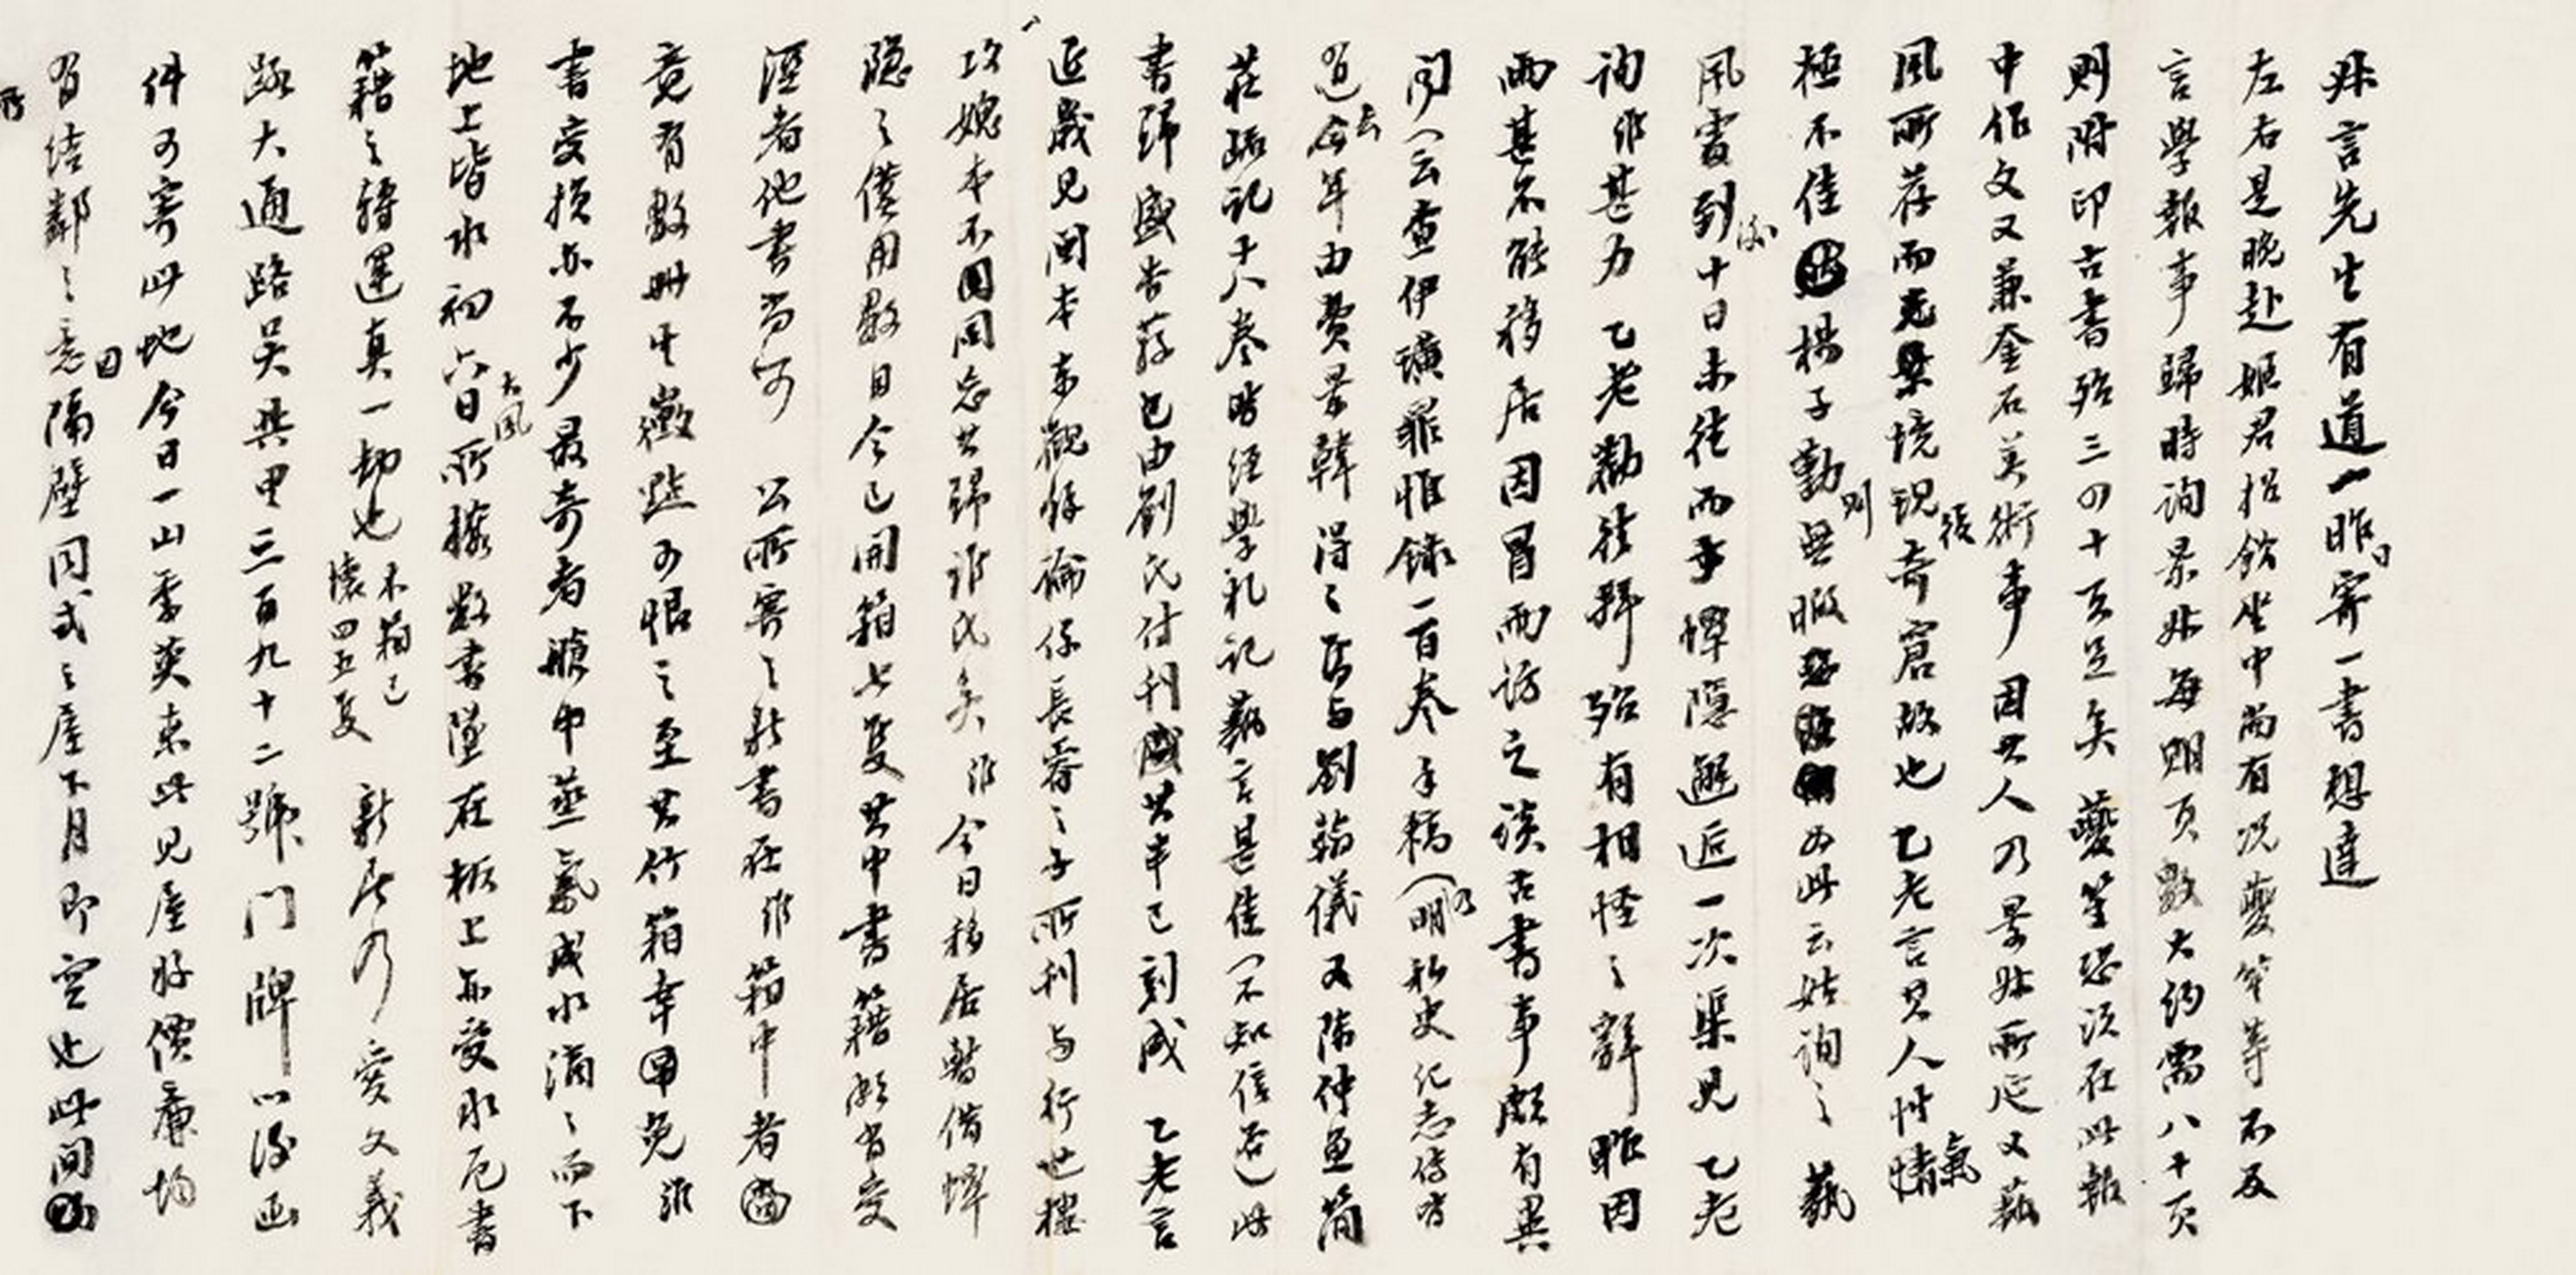 叔言先生有道一昨日寄一書想達
左右是晚赴姬君招飲坐中尚有况夔笙等不及
言學報事歸時詢景叔每期頁數大約需八十頁
則附印古書殆三四十頁足矣夔笙恐須在此報
中作文又兼金石美術事因其人乃景叔所延又藝
風所荐而境現後奇窘故也乙老言其人性情氣
極不佳楊子勤則無暇為此云姑詢之藝
風書到滬十日未往而事惲隱邂逅一次渠見乙老
詢非甚力乙老勸往拜殆有相怪之辭昨因
雨甚不能移居因冒雨訪之談古書事頗有異
聞(云查伊璜罪惟錄一百卷手稿(乃明私史紀志傳皆
近云今年由費景韓得之售与劉翰儀又陳仲魚簡
莊疏記十八卷皆經學札記藝言甚佳(不知信否)此
書歸盛杏蓀已由劉氏付刊其半已刻成乙老言
近歲見閩本東觀餘論係長睿之子所刊与行世樓
攻媿本不同忘其歸誰氏矣 今日移居暫借惲
隱之僕用數日今已開箱七隻其中書籍頗有受
溼者他書尚可 公所寄之新書在 箱中者
竟有數冊生黴點可恨之至其竹箱幸免
書受損亦不少最奇者艙中蒸氣成水滴之而下
地上皆水初六日大風所攜數書墜在板上亦受水厄書
籍之轉運真一劫也木箱已壞四五隻 新居乃愛文義
路大通路吳興里三百九十二號門牌以後函
件可寄此地今日一山季英來此見屋好價廉均
有結鄰之意因隔壁同式之屋下月即空也此間